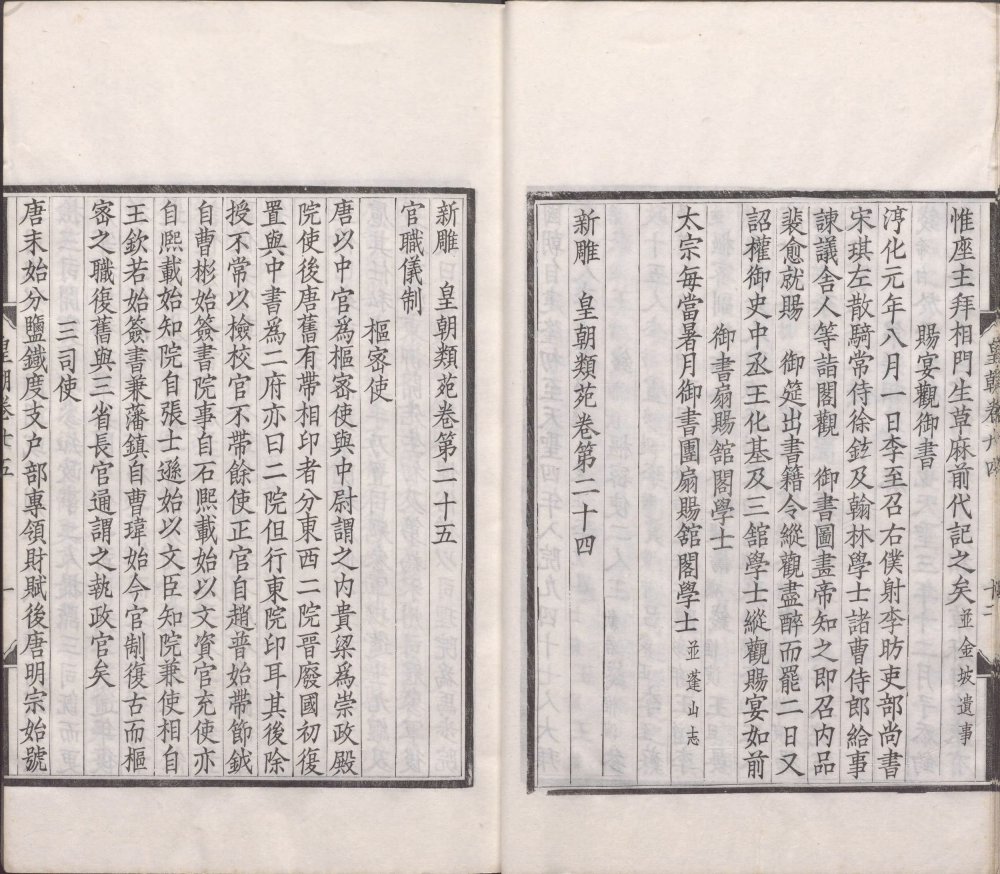 惟座主拜相門生草麻前代記之矣並金坡遺事
賜宴觀御書
淳化元年八月一日李至召右僕射李昉吏部尚書
宋琪左散騎常侍徐鉉及翰林學士諸曹侍郎給事
諫議舍人等詣閣觀 御書圖畫帝知之即召内品
裴愈就賜 御筵出書籍令縱觀盡醉而罷二日又
詔權御史中丞王化基及三舘學士縱觀賜宴如前
御書扇賜舘閣學士
太宗每當暑月御書團扇賜舘閣學士並蓬山志
新雕 皇朝類苑卷第二十四
新雕 皇朝類苑卷第二十五
官職儀制
樞密使
唐以中官為樞密使與中尉謂之内貴梁為崇政殿
院使後唐舊有帶相印者分東西二院晉廢國初復
置與中書為二府亦曰二院但行東院印耳其後除
授不常以檢校官不帶餘使正官自趙普始帶節鉞
自曹彬始簽書院事自石熙載始以文資官充使亦
自熙載始知院自張士遜始以文臣知院兼使相自
王欽若始簽書兼藩鎮自曹瑋始今官制復古而樞
密之職復舊與三省長官通謂之執政官矣
三司使
唐末始分鹽鐵度支户部專領財賦後唐明宗始號